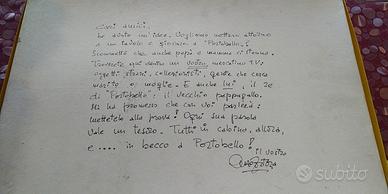 Cari amici,
ho avuto un'idea. Vogliamo metterci attorno
a un tavolo e giocare a "Portobello"?
Scommetto che anche papà e mamma ci stanno.
Troverete qui dentro un vostro mercatino TV:
oggetti strani, collezionisti, gente che cerca
marito o moglie. E anche lui, il re
di "Portobello": il vecchio pappagallo.
Mi ha promesso che con voi parlerà:
mettetelo alla prova! Ogni sua parola
vale un tesoro. Tutti in cabina, allora,
e .... in becco a Portobello!
il vostro
subito